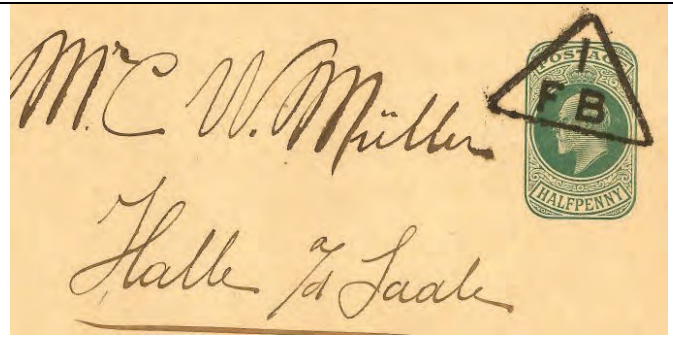 Mr. C. W. Müller
Halle a/d Saale
POSTAGE
HALFPENNY
1
FB